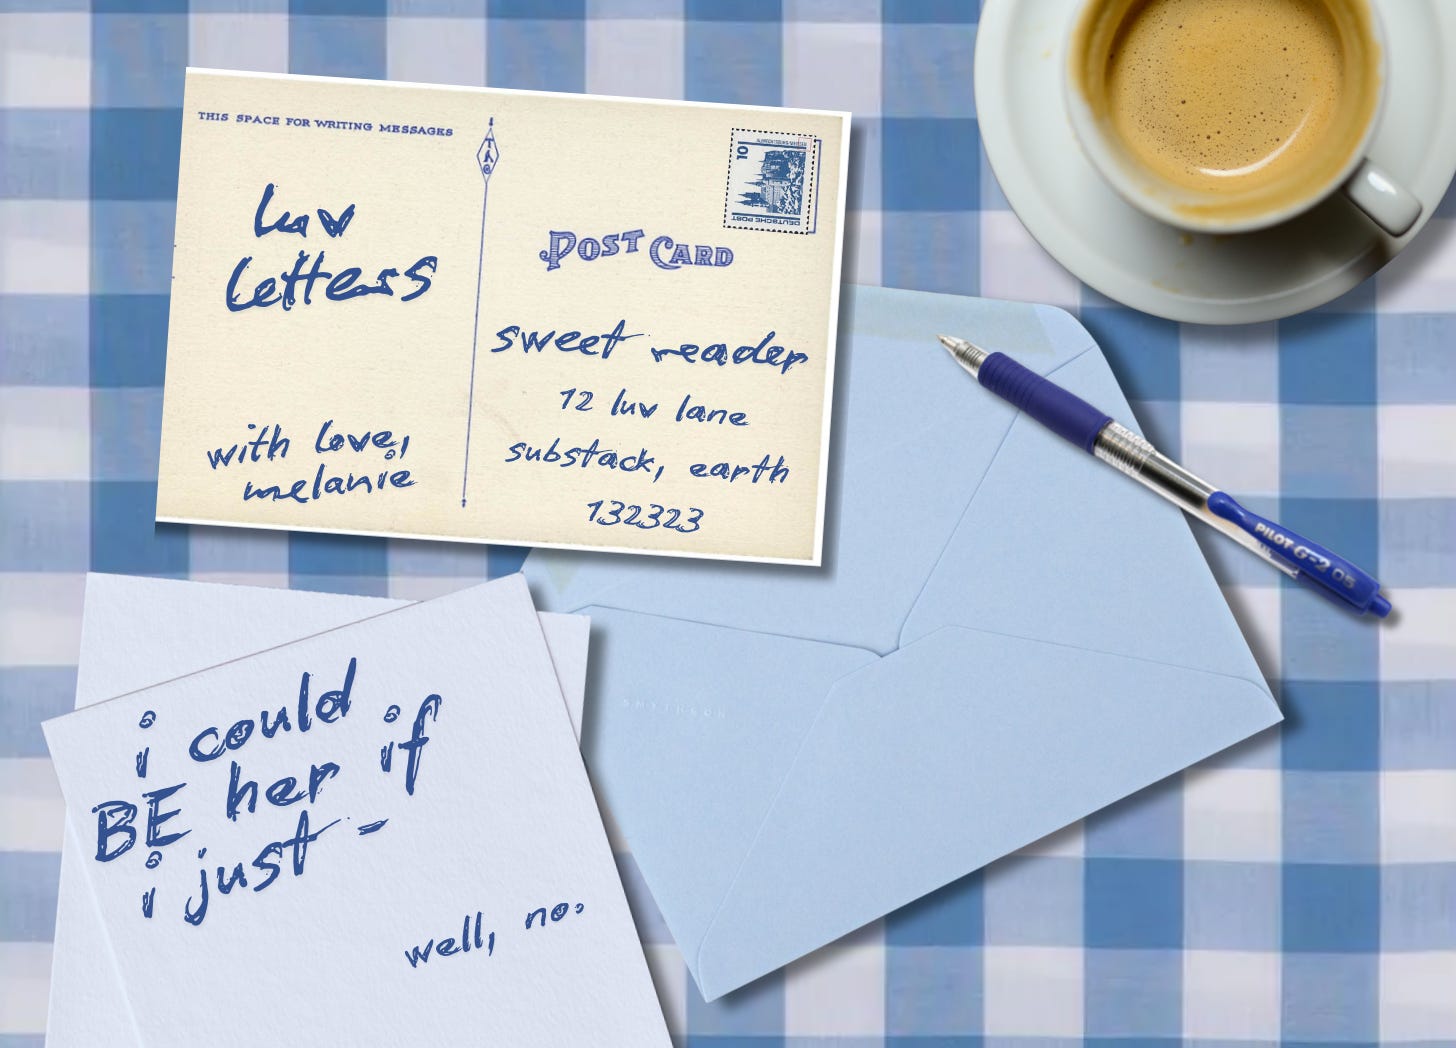 THIS SPACE FOR WRITING MESSAGES
luv
letters
with love,
melanie
10
DEUTSCHE POST
POST CARD
sweet reader
12 luv lane
substack, earth
132323
PILOT G-2 05
SMYTHSON
i could
BE her if
i just -
well, no.